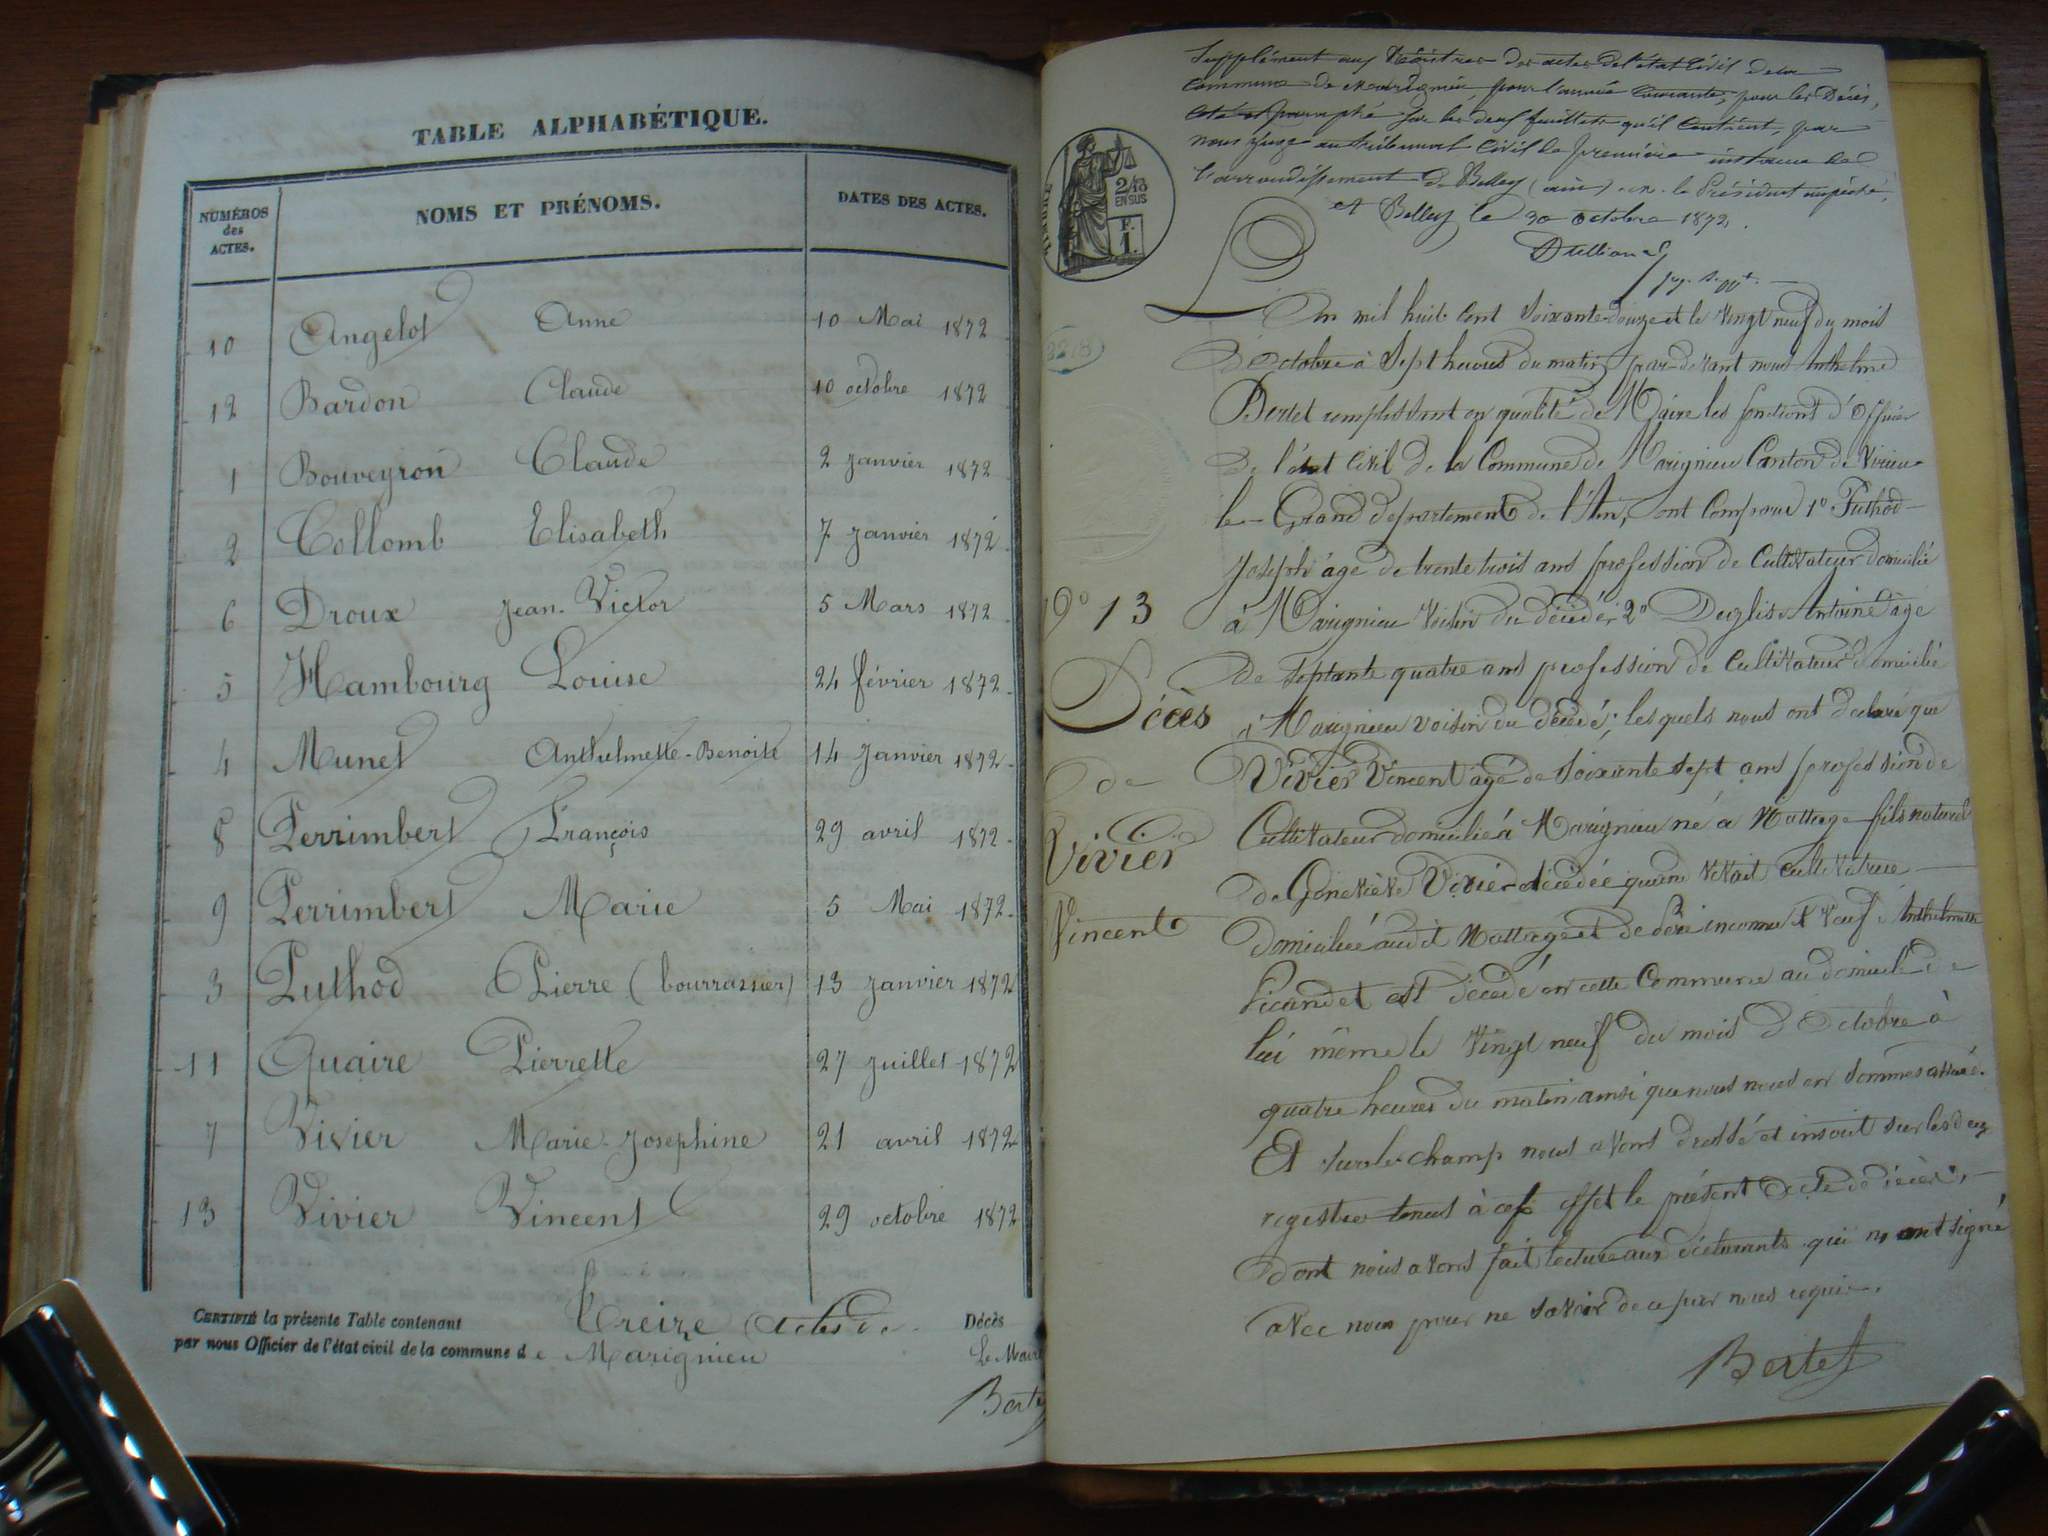 TABLE ALPHABÉTIQUE.
NUMÉROS des ACTES.
NOMS ET PRÉNOMS.
DATES DES ACTES.
10 Angelot Anne 10 Mai 1872
12 Bardon Claude 10 octobre 1872
1 Bouveyron Claude 2 janvier 1872
2 Collomb Elisabeth 7 janvier 1872
6 Droux Jean-Victor 5 Mars 1872
5 Hambourg Louise 24 février 1872
4 Munet Anthelmette-Benoite 14 janvier 1872
8 Perrimbert François 29 avril 1872
9 Perrimbert Marie 5 Mai 1872
3 Puthod Pierre (bourrassier) 13 janvier 1872
11 Quaire Pierrette 27 juillet 1872
7 Vivier Marie-Josephine 21 avril 1872
13 Vivier Vincent 29 octobre 1872
CERTIFIÉ la présente Table contenant Treize actes de Décès
par nous Officier de l'état civil de la commune de Marignieu Le Maire
Berte
Supplément aux Régistres des actes de l'état Civil de la
commune de Marignieu, pour l'année courante, pour les Décès,
coté et paraphé sur les deux feuillets qu'il contient, par
nous juge au tribunal civil de première instance de
l'arrondissement de Belley (ain) le Président empêché,
A Belley le 30 octobre 1872.
2/10
EN SUS
F.
1.
L'an mil huit cent soixante-douze et le vingt neuf du mois
D'octobre à sept heures du matin, par-devant nous Anthelme
Bertet remplissant en qualité de Maire les fonctions d'officier
de l'état civil de la Commune de Marignieu Canton de Virieu
le-Grand département de l'Ain, ont comparu 1º Puthod
Joseph âgé de trente trois ans profession de cultivateur domicilié
à Marignieu voisin du décédér 2º Antoine âgé
de septante quatre ans profession de cultivateur domicilié
à Marignieu voisin du décédé; lesquels nous ont déclaré que
Vivier Vincent âgé de soixante sept ans profession de
Cultivateur domicilié à Marignieu né à Nattage fils naturel
de Genevieve Vivier décédée quand vivait cultivatrice
domiciliée audit Nattage et de père inconnu et veuf d'Anthelmette
Picandet est décédé en cette commune au domicile de
lui même le vingt neuf du mois d'octobre à
quatre heures du matin ainsi que nous nous en sommes assuré.
Et sur le champ nous avons dressé et inscrit sur les deux
registres tenus à cet effet le présent acte de décès,
dont nous avons fait lecture aux déclarants qui n'ont signé
avec nous pour ne savoir de ce par nous requis.
Bertet
Nº 13
Décès
de
Vivier
Vincent